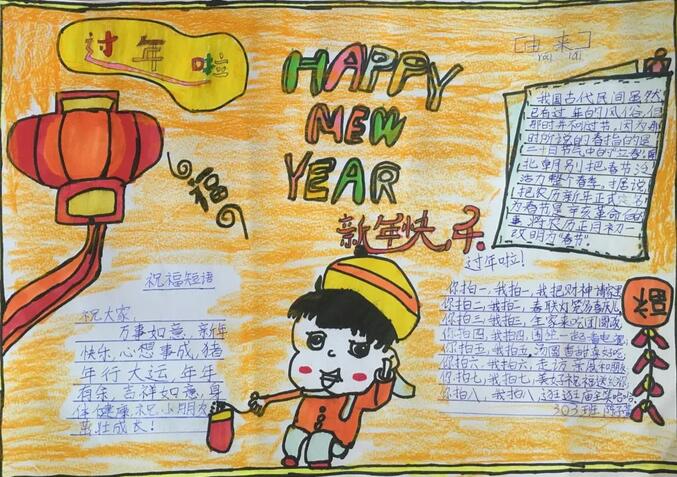 过年啦
HAPPY
NEW
YEAR
新年快乐
福
[由来]
我国古代民间虽然
已有过年的风俗,但
那时并不叫过节,因为那
时所说的春指的是
二十四节气中的“立春”,
北朝别把春节
整个春季,据说,
把农历新年正式
为春节是辛亥革命后的
事 农历正月初一
改明为“春节”
祝福短语
祝大家,
万事如意,新年
快乐,心想事成,猪
年行大运,年年
有余,吉祥如意,身
体健康 祝小朋友
茁壮成长!
过年啦!
你拍一,我拍一,我把财神
你拍二,我拍二,春联灯笼
你拍三,我拍三,全家来吃团圆
你拍四,我拍四,围坐一起看电
你拍五,我拍五,汤圆
你拍六,我拍六,走访亲戚和朋
你拍七,我拍七,美好祝福送给你
你拍八,我拍八,逛逛庙
303班
福